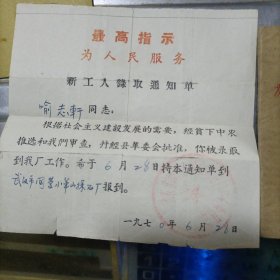 最高指示
为人民服务
新工人录取通知单
喻志軒同志：
根据社会主义建設发展的需要，經貧下中农
推选和我們审查，并經县革委会批准，你被录取
到我厂工作。希于6月28日持本通知单到
武汉市国营小军山採石厂报到。
一九七0年6月26日